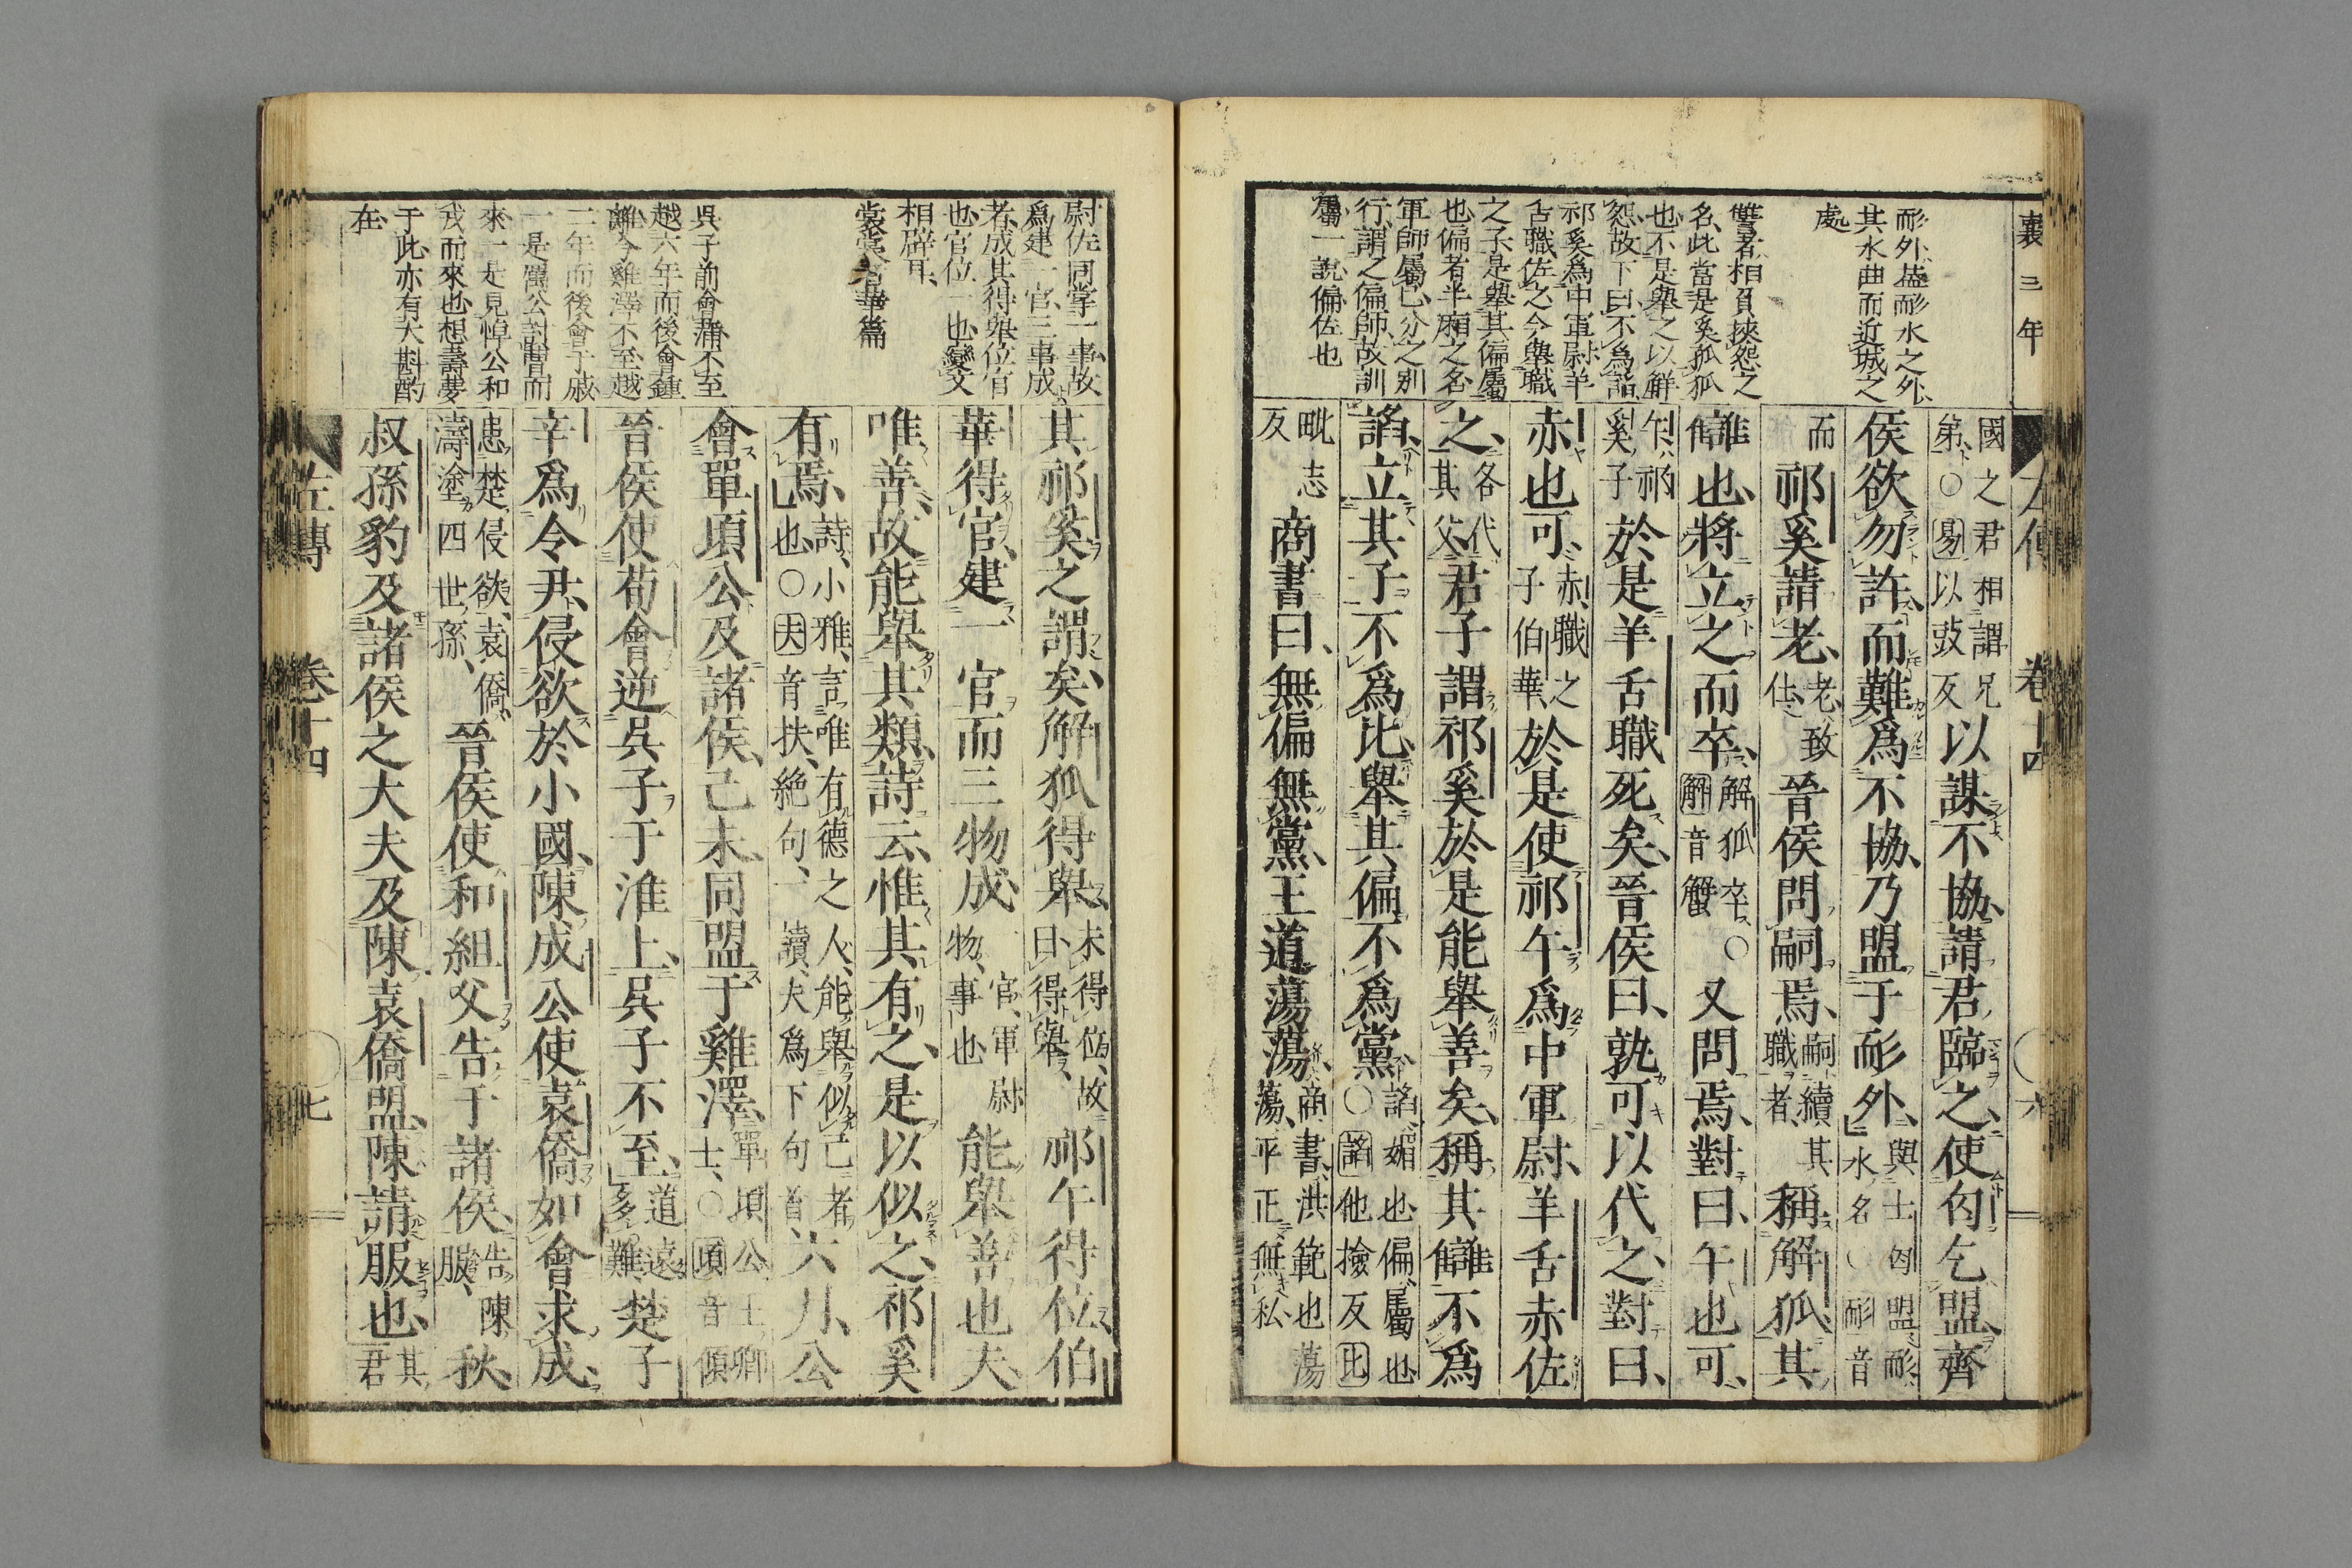 襄三年
左傳 卷十四 六
耏外、蓋耏水之外、
其水曲而近城之
處
讐者、相負挾怨之
名、此當是奚孤狐
也、不是擧之以鮮
怨、故下曰、不爲諂
祁奚爲中軍尉羊
舌職佐之今擧職
之子、是擧其偏屬
也、偏者半廂之名
軍師屬己、分之別
行、謂之偏師、故訓
屬、一說偏佐也
國之君相謂兄弟、○易以豉反以謀不協、請君臨之、使匄乞盟、齊
侯欲勿許、而難爲不協、乃盟于耏外、與士匄盟、耏、水名○耏音
而祁奚請老、老、致仕、晉侯問嗣焉、嗣、續其職者、稱解狐、其
讎也、將立之而卒、解狐卒、○解音蟹又問焉、對曰、午也可、
午、祁奚子於是羊舌職死矣、晉侯曰、孰可以代之、對曰、
赤也可、赤、職之子伯華、於是使祁午爲中軍尉、羊舌赤佐
之、各代其父、君子謂祁奚於是能擧善矣、稱其讎、不爲
諂、立其子、不爲比、擧其偏、不爲黨、諂、媚也、偏、屬也○諂他撿反比
毗志反商書曰、無偏無黨、王道蕩蕩、商書、洪範也蕩蕩、平正無私
尉佐同掌一事故
爲建一官、三事成
者、成其得擧位官
也、官位一也變文
相辟耳、
裳裳者華篇
吳子前會蒲不至
越六年而後會鍾
離、今雞澤不至越
二年而後會于戚
一是厲公討曹而
來一是見悼公和
戎而來也、想壽夢
于此亦有大斟酌
在、
其祁奚之謂矣、解狐得擧、未得位、故曰、得擧、祁午得位、伯
華得官、建一官而三物成、一官、軍尉物、事也能擧善也夫、
唯善、故能擧其類、詩云、惟其有之、是以似之、祁奚
有焉、詩、小雅、言唯有德之人、能擧似己者也、○夫音扶、絕句、一讀、夫爲下句首六月、公
會單頃公及諸侯、己未、同盟于雞澤、單頃公王卿士、○頃音傾
晉侯使荀會逆吳子于淮上、吳子不至、道遠多難楚子
辛爲令尹、侵欲於小國、陳成公使袁僑如會求成、
患楚侵欲、袁僑、濤塗四世孫、晉侯使和組父告于諸侯、告陳服、秋、
叔孫豹及諸侯之大夫及陳袁僑盟、陳請服也、其君
左傳 卷十四 七